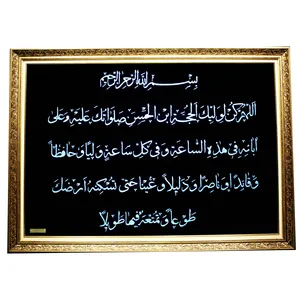 بسم الله الرحمن الرحيم
اللهم كن لوليك الحجة ابن الحسن صلواتك عليه وعلى
آبائه في هذه الساعة وفي كل ساعة وليا وحافظا
وقائدا وناصرا ودليلا وعينا حتى تسكنه أرضك
طوعا وتمتعه فيها طويلا